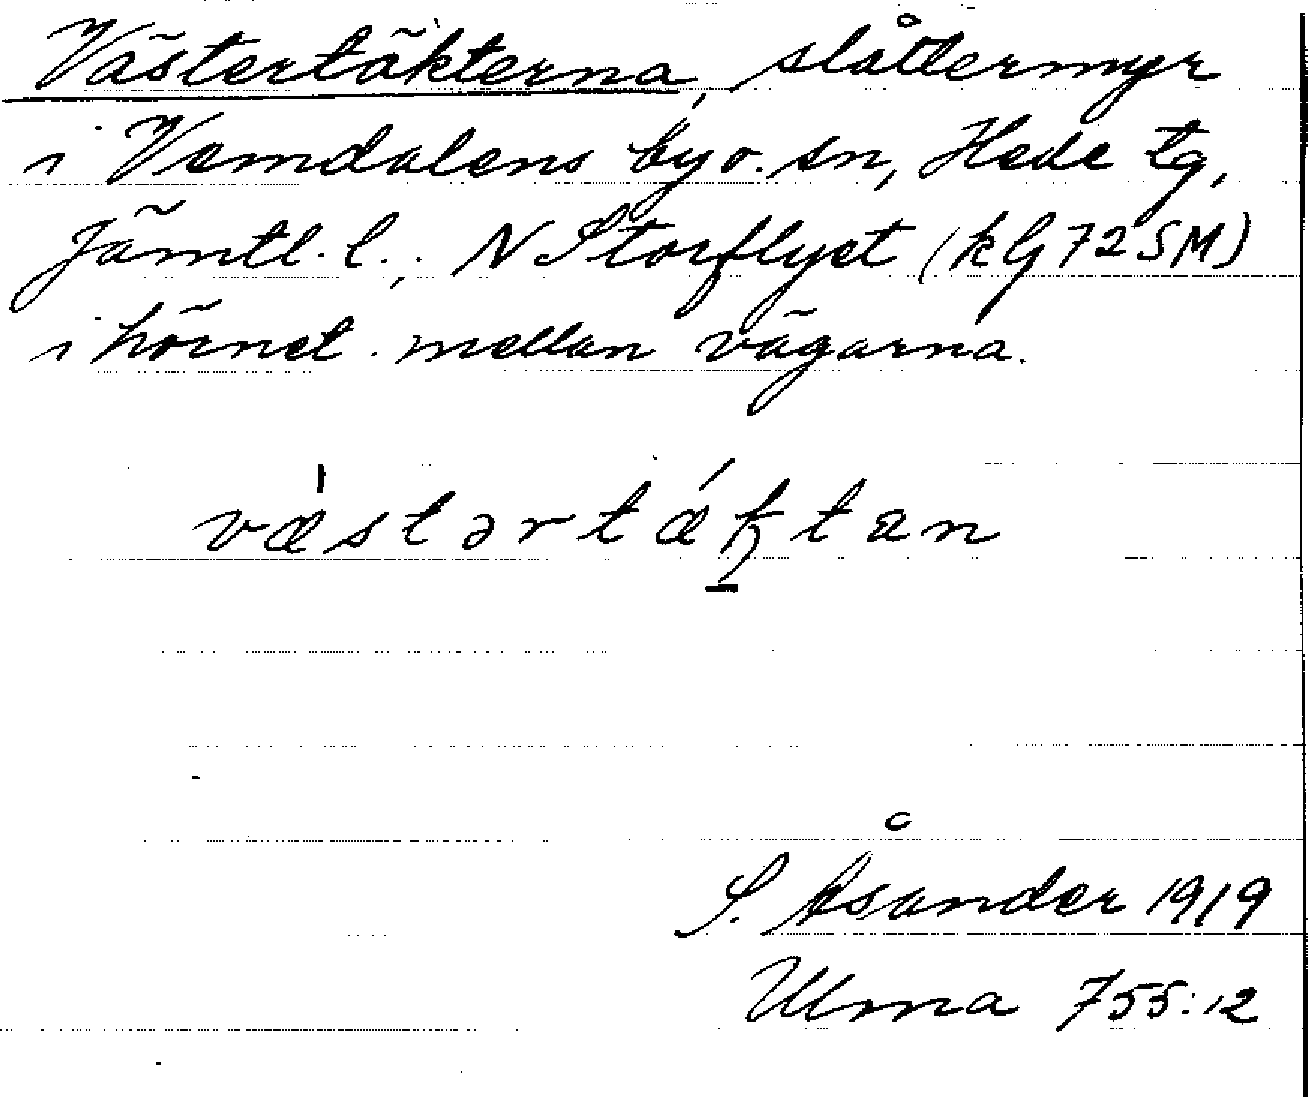 Västertäkterna, slåttermyr
i Vemdalens by o. sn, Hede tg,
Jämtl. l., N Storflyet (kG 72 SM)
i hörnet mellan vägarna.
S. Åsander 1919
Ulma 755:12